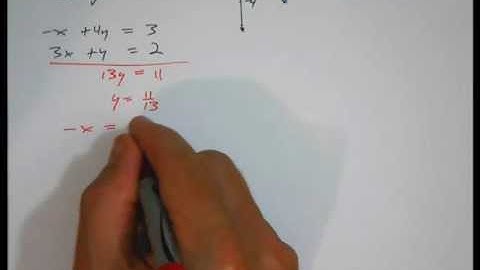 -x + 4y = 3
3x + y = 2
13y = 11
y = 11/13
-x =